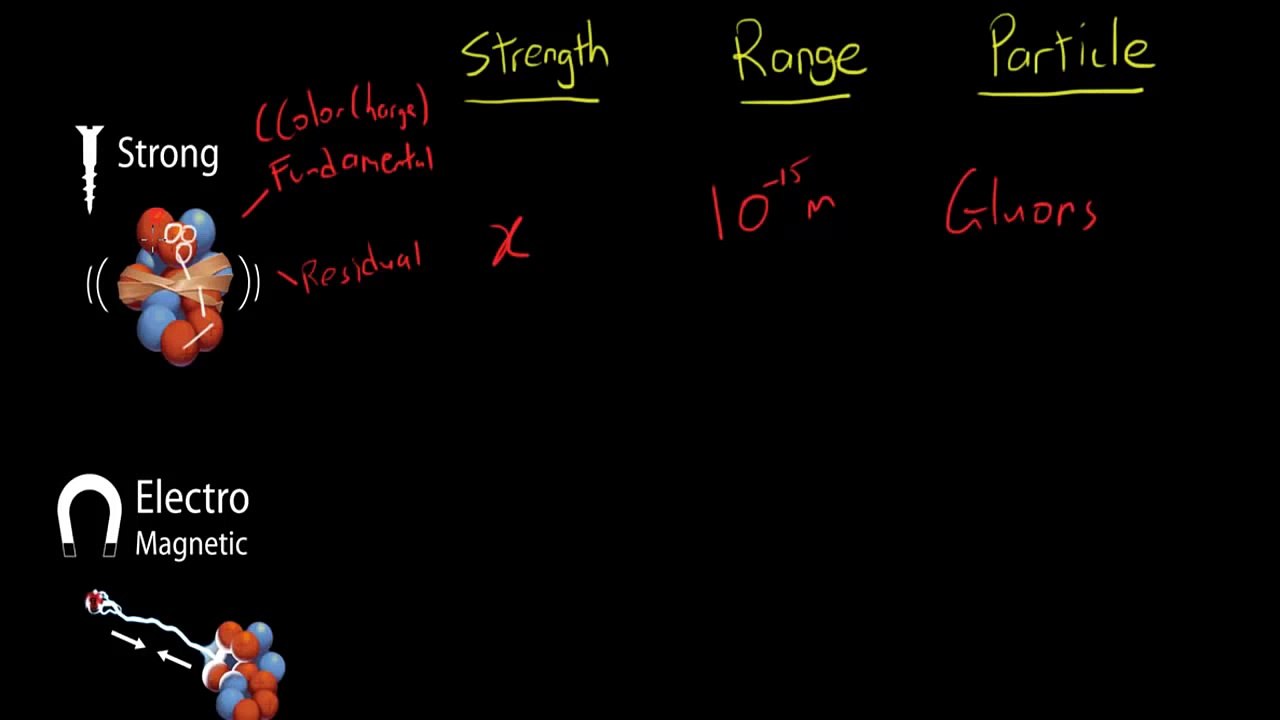 Strength Range Particle
(Color Charge)
Strong
Fundamental
10⁻¹⁵ m Gluons
x
Residual
Electro
Magnetic